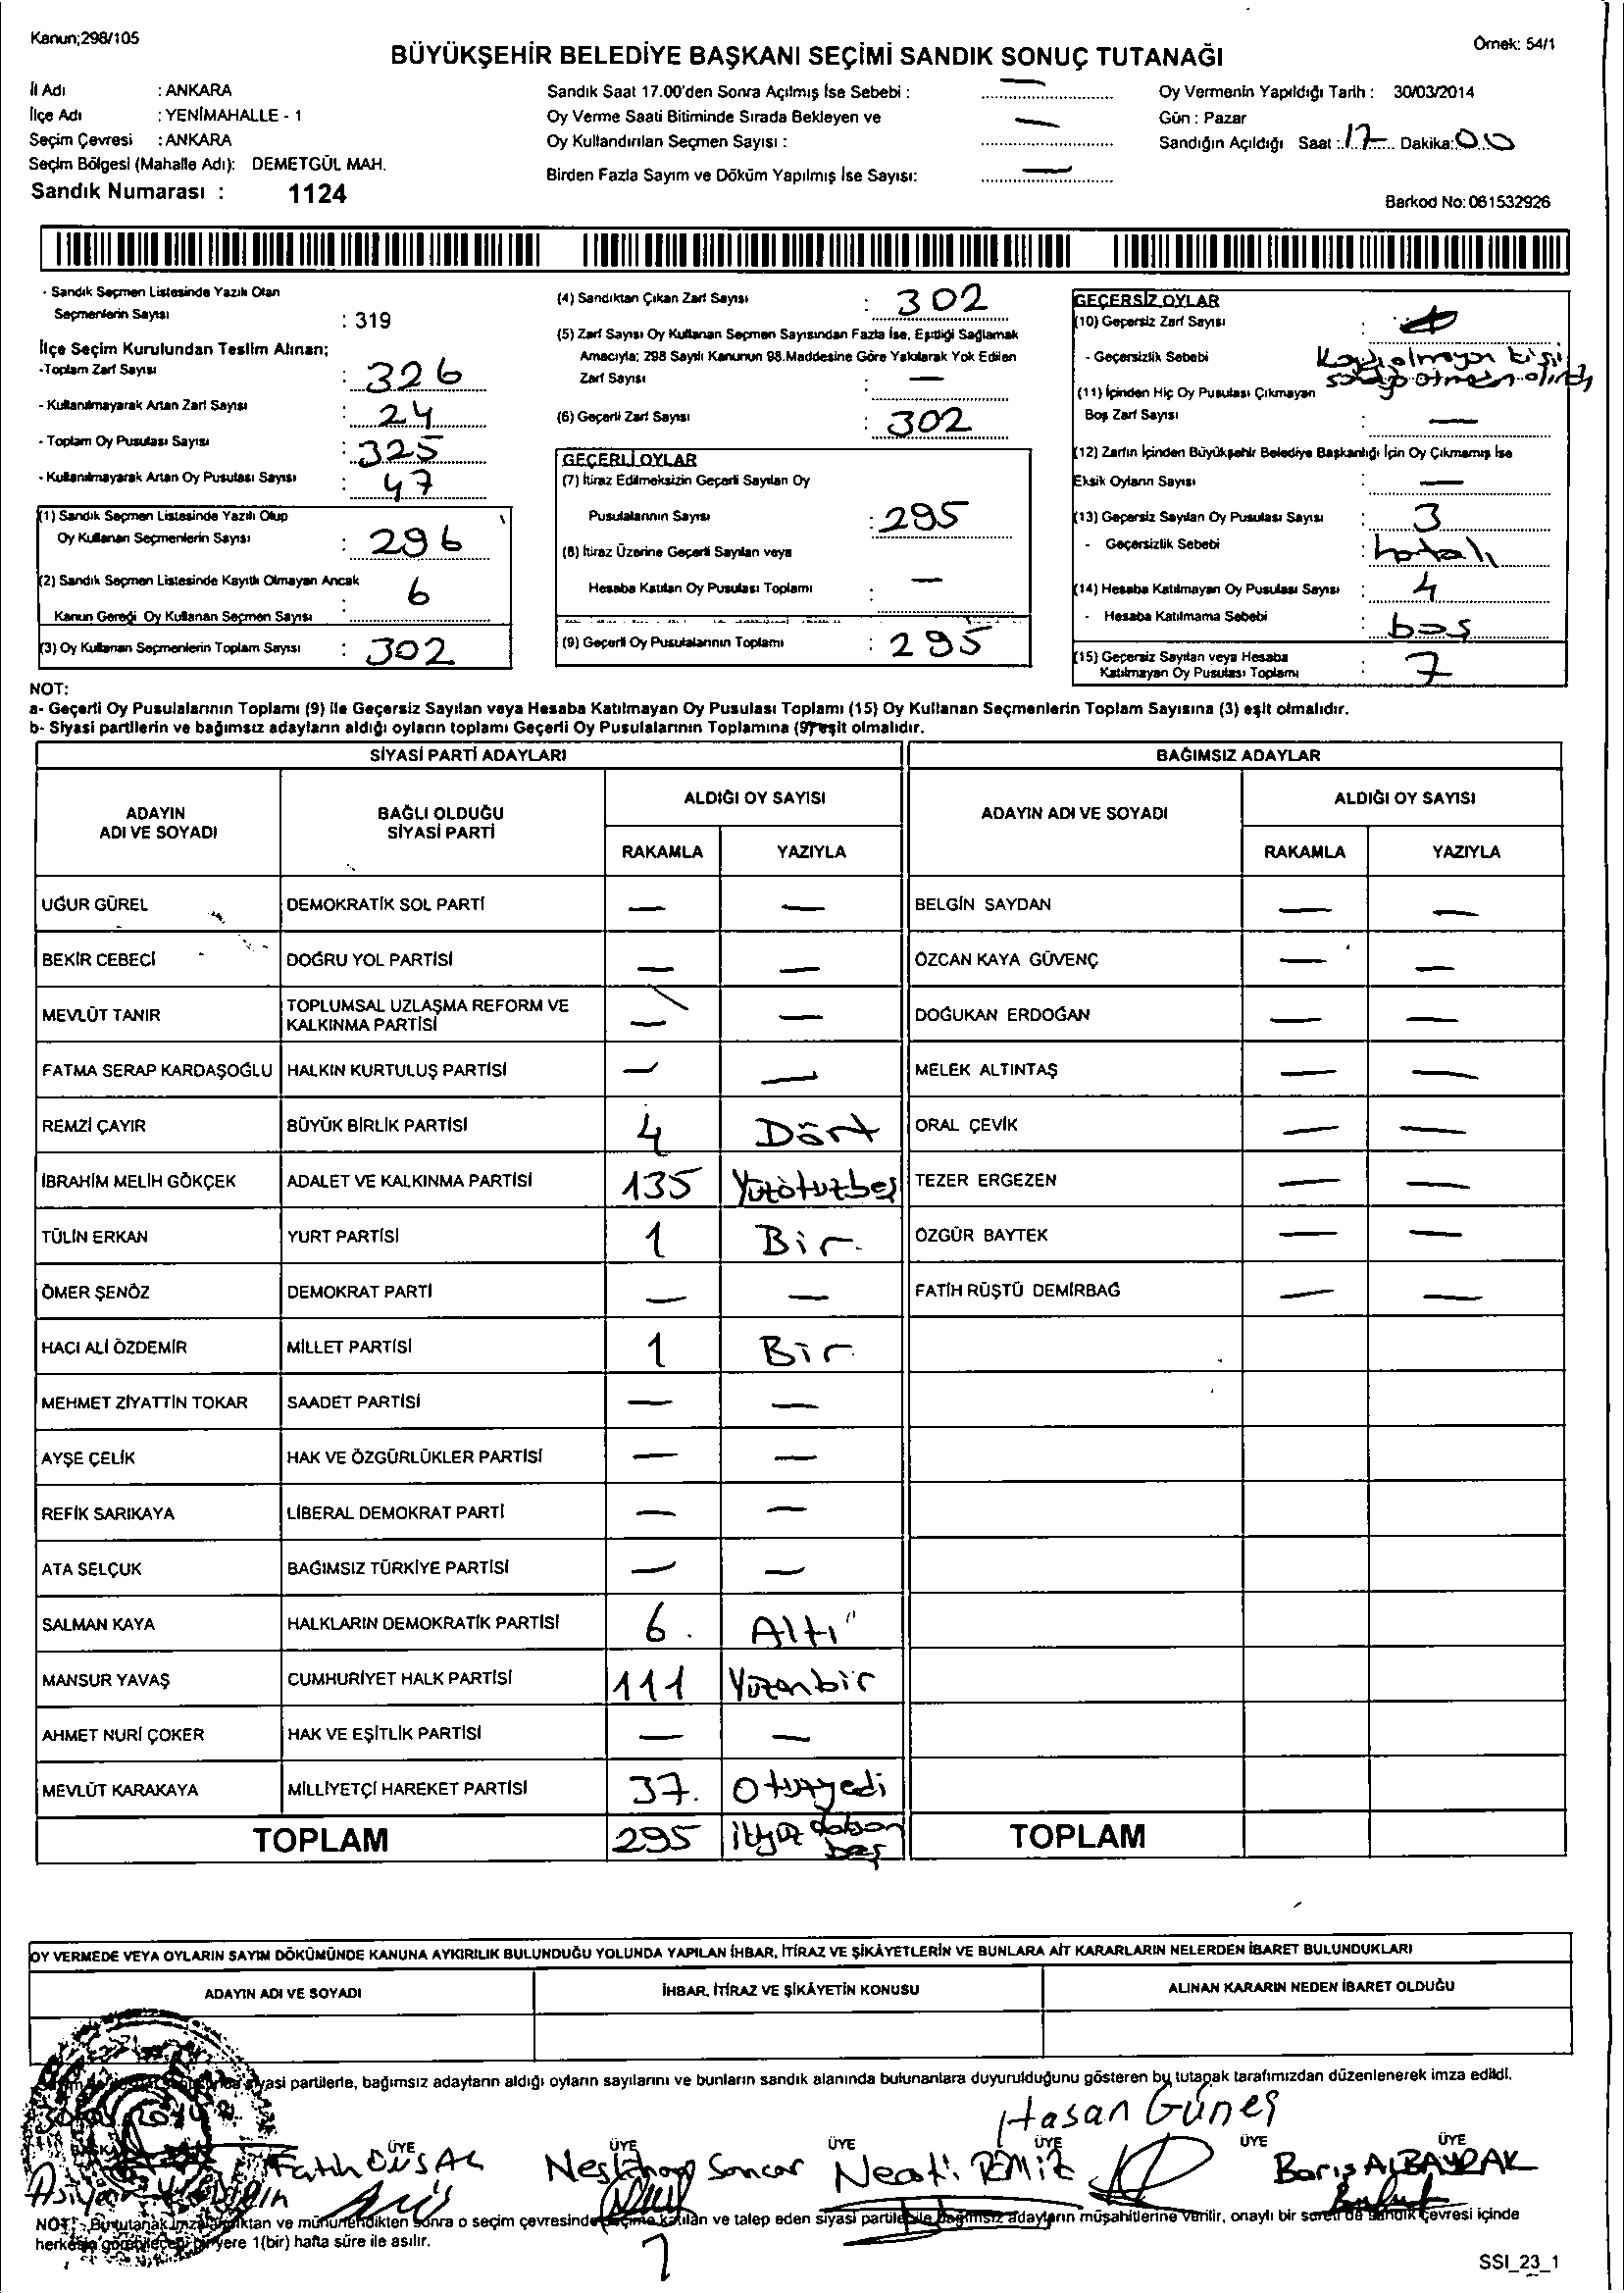 Kanun;298/105
Örnek: 54/1
BÜYÜKŞEHİR BELEDİYE BAŞKANI SEÇİMİ SANDIK SONUÇ TUTANAĞI
İl Adı : ANKARA
İlçe Adı : YENİMAHALLE - 1
Seçim Çevresi : ANKARA
Seçim Bölgesi (Mahalle Adı): DEMETGÜL MAH.
Sandık Numarası : 1124
Sandık Saat 17.00'den Sonra Açılmış İse Sebebi : —
Oy Verme Saati Bitiminde Sırada Bekleyen ve
Oy Kullandırılan Seçmen Sayısı : —
Birden Fazla Sayım ve Döküm Yapılmış İse Sayısı: —
Oy Vermenin Yapıldığı Tarih : 30/03/2014
Gün : Pazar
Sandığın Açıldığı Saat : 17 Dakika: 00
Barkod No: 061532926
- Sandık Seçmen Listesinde Yazılı Olan
Seçmenlerin Sayısı : 319
İlçe Seçim Kurulundan Teslim Alınan;
-Toplam Zarf Sayısı : 326
- Kullanılmayarak Artan Zarf Sayısı : 24
- Toplam Oy Pusulası Sayısı : 325
- Kullanılmayarak Artan Oy Pusulası Sayısı : 47
(1) Sandık Seçmen Listesinde Yazılı Olup
Oy Kullanan Seçmenlerin Sayısı : 296
(2) Sandık Seçmen Listesinde Kayıtlı Olmayan Ancak
Kanun Gereği Oy Kullanan Seçmen Sayısı : 6
(3) Oy Kullanan Seçmenlerin Toplam Sayısı : 302
(4) Sandıktan Çıkan Zarf Sayısı : 302
(5) Zarf Sayısı Oy Kullanan Seçmen Sayısından Fazla İse, Eşitliği Sağlamak
Amacıyla; 298 Sayılı Kanunun 98.Maddesine Göre Yakılarak Yok Edilen
Zarf Sayısı : —
(6) Geçerli Zarf Sayısı : 302
GEÇERLİ OYLAR
(7) İtiraz Edilmeksizin Geçerli Sayılan Oy
Pusulalarının Sayısı : 295
(8) İtiraz Üzerine Geçerli Sayılan veya
Hesaba Katılan Oy Pusulası Toplamı : —
(9) Geçerli Oy Pusulalarının Toplamı : 295
GEÇERSİZ OYLAR
(10) Geçersiz Zarf Sayısı :
- Geçersizlik Sebebi : olmayan kişi
(11) İçinden Hiç Oy Pusulası Çıkmayan
Boş Zarf Sayısı : —
(12) Zarfın İçinden Büyükşehir Belediye Başkanlığı İçin Oy Çıkmamış İse
Eksik Oyların Sayısı : —
(13) Geçersiz Sayılan Oy Pusulası Sayısı : 3
- Geçersizlik Sebebi : hatalı
(14) Hesaba Katılmayan Oy Pusulası Sayısı : 4
- Hesaba Katılmama Sebebi : boş
(15) Geçersiz Sayılan veya Hesaba
Katılmayan Oy Pusulası Toplamı : 7
NOT:
a- Geçerli Oy Pusulalarının Toplamı (9) ile Geçersiz Sayılan veya Hesaba Katılmayan Oy Pusulası Toplamı (15) Oy Kullanan Seçmenlerin Toplam Sayısına (3) eşit olmalıdır.
b- Siyasi partilerin ve bağımsız adayların aldığı oyların toplamı Geçerli Oy Pusulalarının Toplamına (9) eşit olmalıdır.
SİYASİ PARTİ ADAYLARI BAĞIMSIZ ADAYLAR
ADAYIN ADI VE SOYADI BAĞLI OLDUĞU SİYASİ PARTİ ALDIĞI OY SAYISI ADAYIN ADI VE SOYADI ALDIĞI OY SAYISI
RAKAMLA YAZIYLA RAKAMLA YAZIYLA
UĞUR GÜREL DEMOKRATİK SOL PARTİ — — BELGİN SAYDAN — —
BEKİR CEBECİ DOĞRU YOL PARTİSİ — — ÖZCAN KAYA GÜVENÇ — —
MEVLÜT TANIR TOPLUMSAL UZLAŞMA REFORM VE KALKINMA PARTİSİ — — DOĞUKAN ERDOĞAN — —
FATMA SERAP KARDAŞOĞLU HALKIN KURTULUŞ PARTİSİ — — MELEK ALTINTAŞ — —
REMZİ ÇAYIR BÜYÜK BİRLİK PARTİSİ 4 Dört ORAL ÇEVİK — —
İBRAHİM MELİH GÖKÇEK ADALET VE KALKINMA PARTİSİ 135 Yüzotuzbeş TEZER ERGEZEN — —
TÜLİN ERKAN YURT PARTİSİ 1 Bir ÖZGÜR BAYTEK — —
ÖMER ŞENÖZ DEMOKRAT PARTİ — — FATİH RÜŞTÜ DEMİRBAĞ — —
HACI ALİ ÖZDEMİR MİLLET PARTİSİ 1 Bir
MEHMET ZİYATTİN TOKAR SAADET PARTİSİ — —
AYŞE ÇELİK HAK VE ÖZGÜRLÜKLER PARTİSİ — —
REFİK SARIKAYA LİBERAL DEMOKRAT PARTİ — —
ATA SELÇUK BAĞIMSIZ TÜRKİYE PARTİSİ — —
SALMAN KAYA HALKLARIN DEMOKRATİK PARTİSİ 6 Altı
MANSUR YAVAŞ CUMHURİYET HALK PARTİSİ 111 Yüzonbir
AHMET NURİ ÇOKER HAK VE EŞİTLİK PARTİSİ — —
MEVLÜT KARAKAYA MİLLİYETÇİ HAREKET PARTİSİ 37. Otuzyedi
TOPLAM 295 ikiyüz doksan beş TOPLAM
OY VERMEDE VEYA OYLARIN SAYIM DÖKÜMÜNDE KANUNA AYKIRILIK BULUNDUĞU YOLUNDA YAPILAN İHBAR, İTİRAZ VE ŞİKÂYETLERİN VE BUNLARA AİT KARARLARIN NELERDEN İBARET BULUNDUKLARI
ADAYIN ADI VE SOYADI İHBAR, İTİRAZ VE ŞİKÂYETİN KONUSU ALINAN KARARIN NEDEN İBARET OLDUĞU
siyasi partilerle, bağımsız adayların aldığı oyların sayılarını ve bunların sandık alanında bulunanlara duyurulduğunu gösteren bu tutanak tarafımızdan düzenlenerek imza edildi.
Hasan Güneş
BAŞKAN ÜYE ÜYE ÜYE ÜYE ÜYE ÜYE
Fatih Neslihan Sancar Necati Barış ALBAYRAK
NOT: Bu tutanak imzalandıktan ve mühürlendikten sonra o seçim çevresinde seçime katılan ve talep eden siyasi partilerle bağımsız adayların müşahitlerine verilir, onaylı bir sureti de sandık çevresi içinde
herkesin görebileceği bir yere 1(bir) hafta süre ile asılır.
SSI_23_1